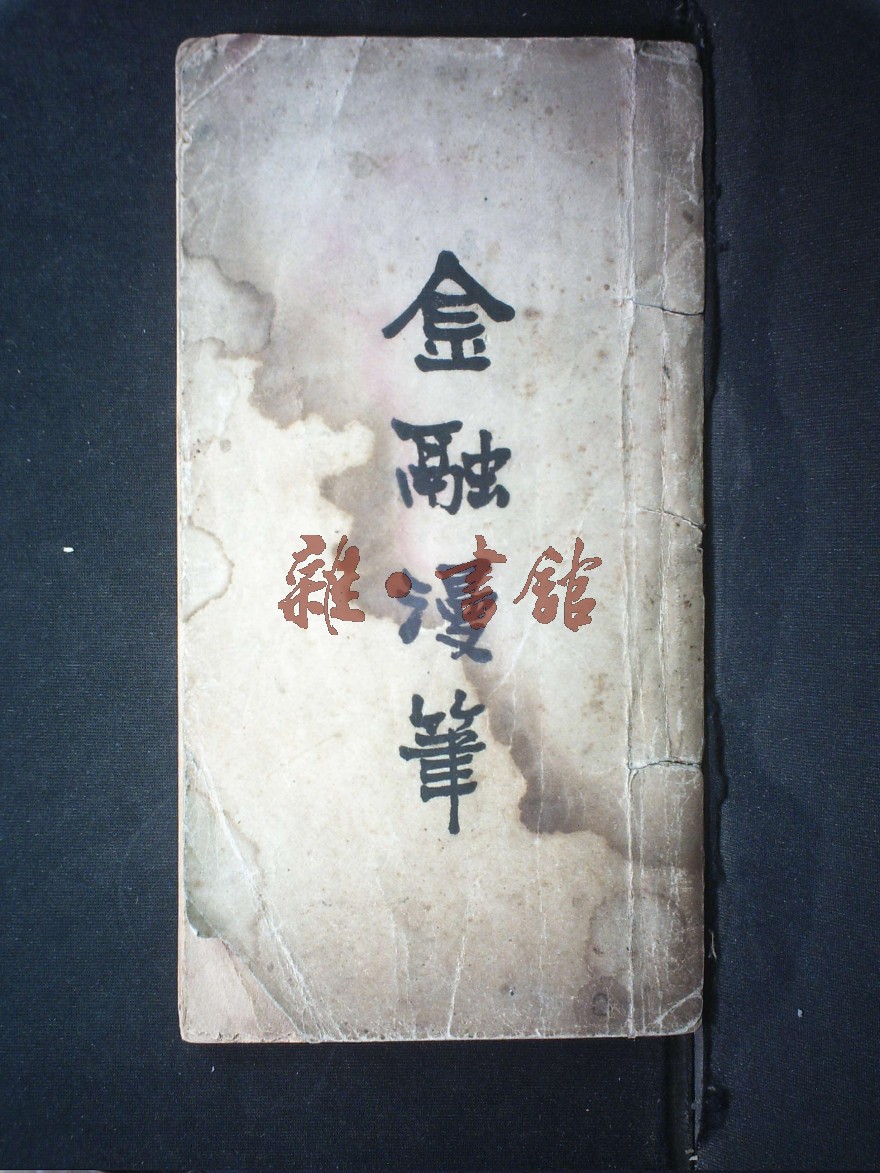 金融漫筆
雜·書館